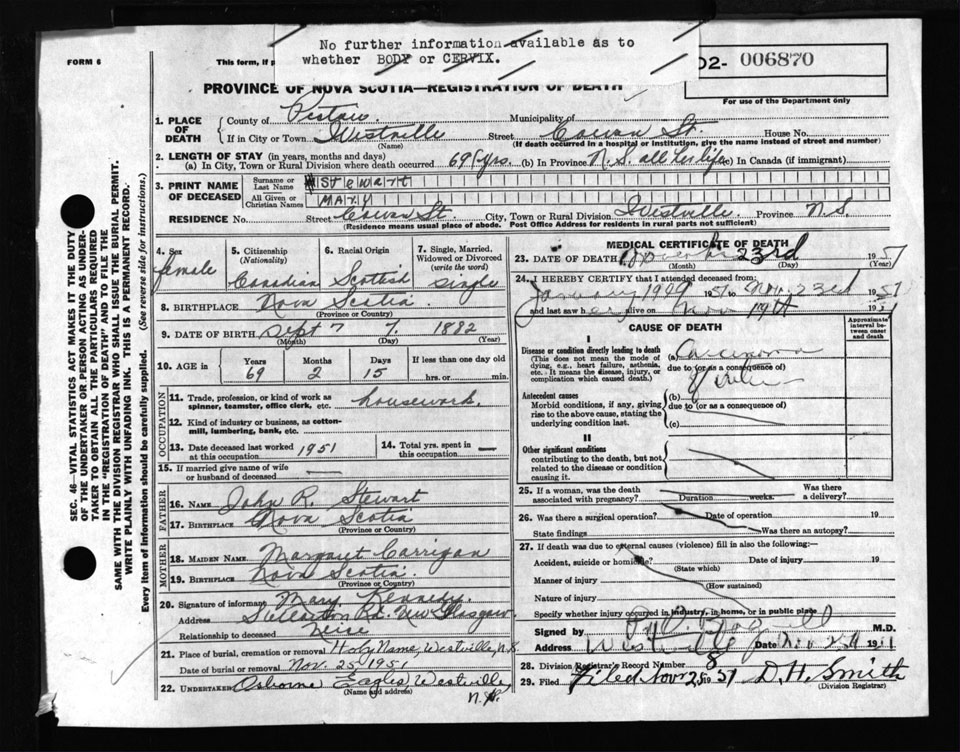 No further information available as to
whether BODY or CERVIX.
FORM 6
This form, if p
02- 006870
PROVINCE OF NOVA SCOTIA—REGISTRATION OF DEATH
For use of the Department only
SEC. 46—VITAL STATISTICS ACT MAKES IT THE DUTY
OF THE UNDERTAKER OR PERSON ACTING AS UNDER-
TAKER TO OBTAIN ALL THE PARTICULARS REQUIRED
IN THE "REGISTRATION OF DEATH" AND TO FILE THE
SAME WITH THE DIVISION REGISTRAR WHO SHALL ISSUE THE BURIAL PERMIT.
WRITE PLAINLY WITH UNFADING INK. THIS IS A PERMANENT RECORD.
Every item of Information should be carefully supplied. (See reverse side for instructions.)
1. PLACE OF DEATH
County of Pictou Municipality of
If in City or Town Westville Street Cowan St. House No.
(Name) (If death occurred in a hospital or institution, give the name instead of street and number)
2. LENGTH OF STAY (in years, months and days)
(a) In City, Town or Rural Division where death occurred 69 yrs. (b) In Province N.S. all her life (c) In Canada (if immigrant)
3. PRINT NAME OF DECEASED
Surname or Last Name Stewart
All Given or Christian Names MARY
RESIDENCE No. Street Cowan St. City, Town or Rural Division Westville Province N.S.
(Residence means usual place of abode. Post Office Address for residents in rural parts not sufficient)
4. Sex female
5. Citizenship (Nationality) Canadian
6. Racial Origin Scottish
7. Single, Married, Widowed or Divorced (write the word) single
8. BIRTHPLACE Nova Scotia
(Province or Country)
9. DATE OF BIRTH Sept 7 7. 1882
(Month) (Day) (Year)
10. AGE in Years 69 Months 2 Days 15 If less than one day old
hrs. or min.
OCCUPATION
11. Trade, profession, or kind of work as spinner, teamster, office clerk, etc. housework.
12. Kind of industry or business, as cotton-mill, lumbering, bank, etc.
13. Date deceased last worked at this occupation 1951
14. Total yrs. spent in this occupation —
15. If married give name of wife or husband of deceased —
FATHER
16. NAME John R. Stewart
17. BIRTHPLACE Nova Scotia
(Province or Country)
MOTHER
18. MAIDEN NAME Margaret Carrigan
19. BIRTHPLACE Nova Scotia
(Province or Country)
20. Signature of informant Mary Kennedy
Address Stellarton Rd. New Glasgow.
Relationship to deceased Neice
21. Place of burial, cremation or removal Holy Name, Westville, N.S.
Date of burial or removal Nov. 25 1951
22. UNDERTAKER Osborne Eagles Westville
(Name and address) N.S.
MEDICAL CERTIFICATE OF DEATH
23. DATE OF DEATH November 23rd 1951
(Month) (Day) (Year)
24. I HEREBY CERTIFY that I attended deceased from:
January 1949 1951 to Nov. 23rd 1951
and last saw her alive on Nov 19th 1951
CAUSE OF DEATH
Approximate interval between onset and death
I
Disease or condition directly leading to death
(This does not mean the mode of dying, e.g., heart failure, asthenia, etc. It means the disease, injury, or complication which caused death.)
(a) Carcinoma
due to (or as a consequence of)
Uterus
Antecedent causes
Morbid conditions, if any, giving rise to the above cause, stating the underlying condition last.
(b)
due to (or as a consequence of)
(c)
II
Other significant conditions
contributing to the death, but not related to the disease or condition causing it.
25. If a woman, was the death associated with pregnancy? Duration weeks. Was there a delivery?
26. Was there a surgical operation? Date of operation 19
State findings Was there an autopsy?
27. If death was due to external causes (violence) fill in also the following:—
Accident, suicide or homicide? Date of injury 19
(State which)
Manner of injury
(How sustained)
Nature of injury
Specify whether injury occurred in industry, in home, or in public place
Signed by M.D.
Address Westville Date Nov 1951
28. Division Registrar's Record Number 8
29. Filed Filed Nov 25 1951 D. H. Smith
(Division Registrar)